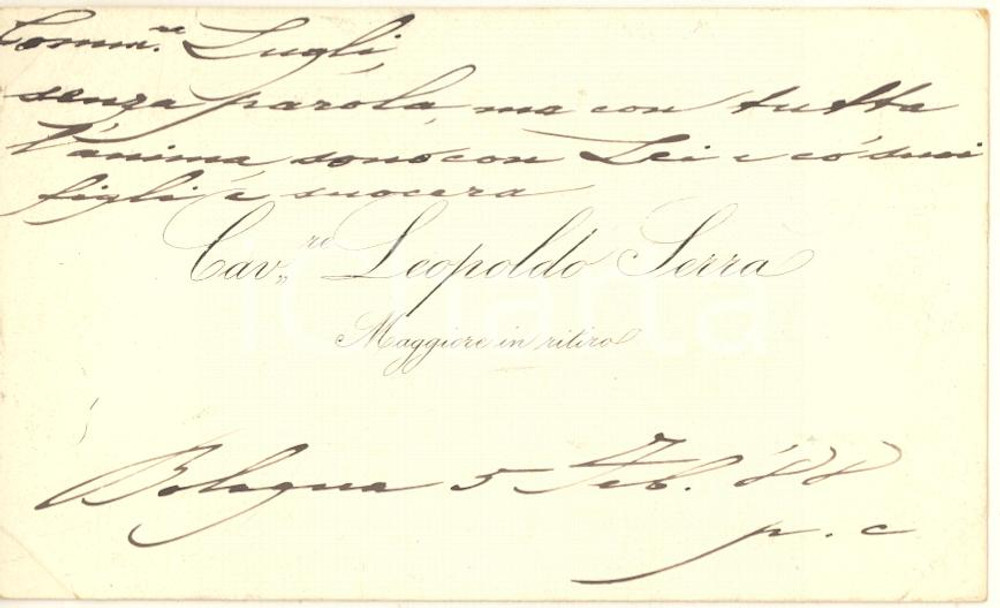 Comm.re Lugli,
senza parola, ma con tutta
l'anima sono con Lei e co' suoi
figli e suocera
Cav.re Leopoldo Serra
Maggiore in ritiro
Bologna 5 Feb. '88
p. c